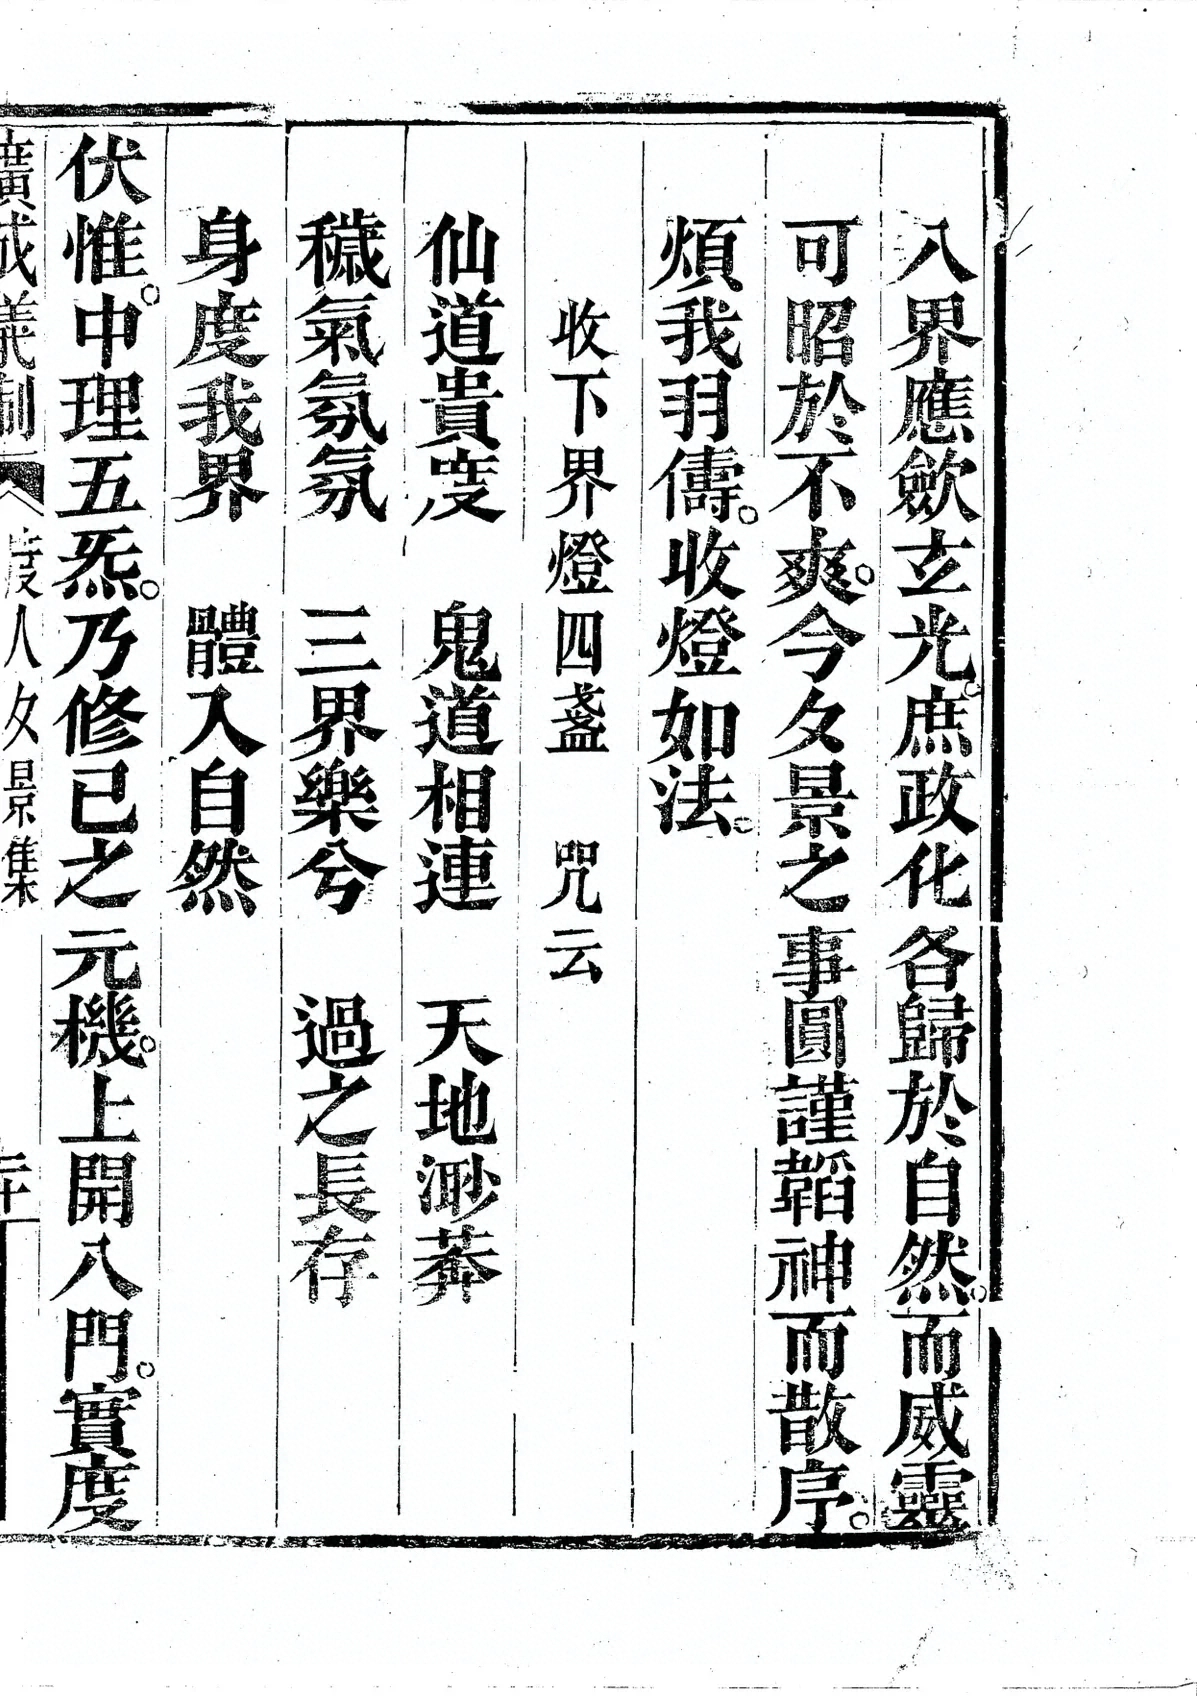 八界應歛玄光。庶政化各歸於自然。而威靈
可昭於不爽。今夕景之事圓謹韜神而散序。
煩我羽儔。收燈如法。
收下界燈四盞　咒云
仙道貴度　鬼道相連　天地渺莽
穢氣氛氛　三界樂兮　過之長存
身度我界　體入自然
伏惟。中理五炁。乃修己之元機。上開八門。實度
廣成儀制　度人夕景集　二十